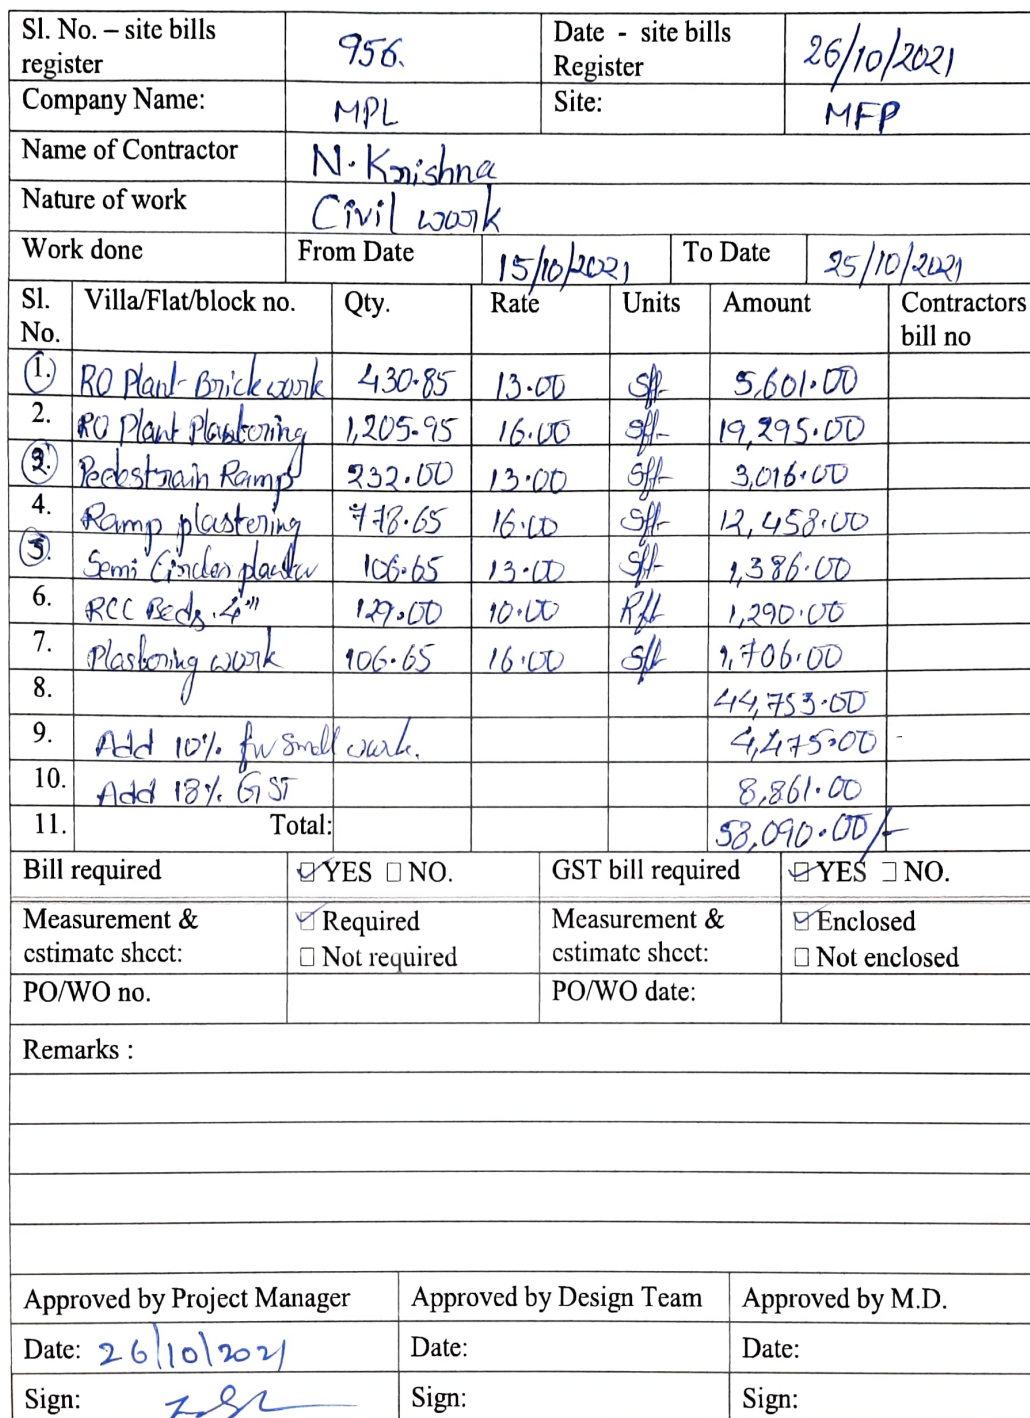 Sl. No. – site bills register 956. Date - site bills Register 26/10/2021
Company Name: MPL Site: MFP
Name of Contractor N. Krishna
Nature of work Civil work
Work done From Date 15/10/2021 To Date 25/10/2021
Sl. No. Villa/Flat/block no. Qty. Rate Units Amount Contractors bill no
1. RO Plant Brick work 430.85 13.00 Sft 5,601.00
2. RO Plant Plastoring 1,205.95 16.00 Sft 19,295.00
3. Pedestrain Ramp 232.00 13.00 Sft 3,016.00
4. Ramp plastering 778.65 16.00 Sft 12,458.00
5. Semi Circler 106.65 13.00 Sft 1,386.00
6. RCC Beds. 4" 129.00 10.00 Rft 1,290.00
7. Plastoring work 106.65 16.00 Sft 1,706.00
8. 44,753.00
9. Add 10% for small work. 4,475.00 -
10. Add 18% GST 8,861.00
11. Total: 58,090.00/-
Bill required ☑ YES □ NO. GST bill required ☑ YES □ NO.
Measurement & estimate sheet: ☑ Required □ Not required Measurement & estimate sheet: ☑ Enclosed □ Not enclosed
PO/WO no. PO/WO date:
Remarks :
Approved by Project Manager Approved by Design Team Approved by M.D.
Date: 26/10/2021 Date: Date:
Sign: Sign: Sign: